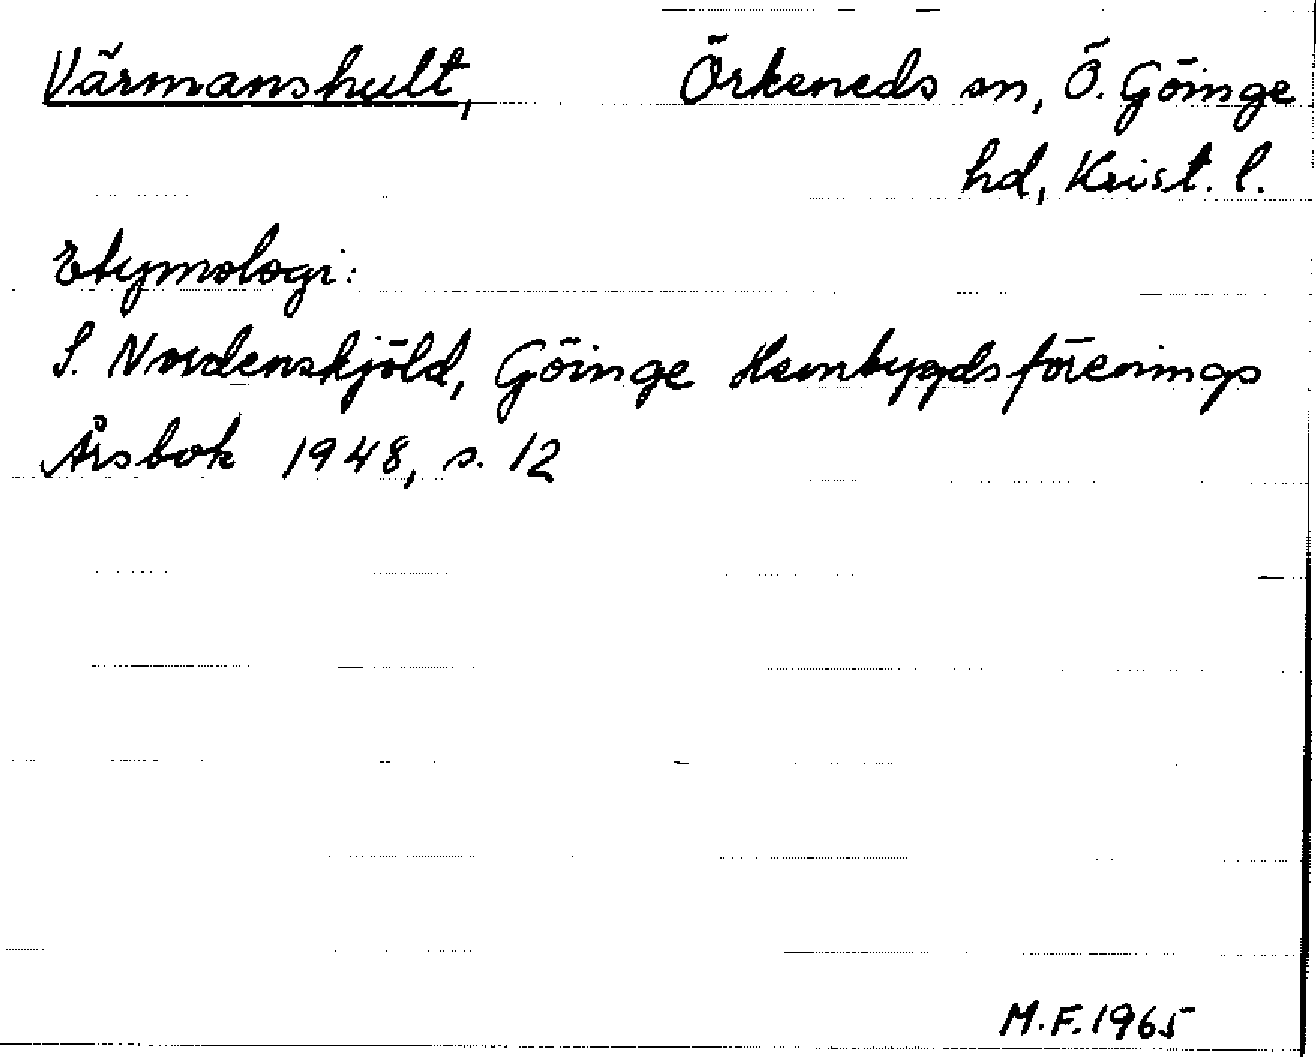 Värmanshult, Örkeneds sn, Ö. Göinge
hd, Krist. l.
Etymologi:
S. Nordenskjöld, Göinge Hembygdsförenings
Årsbok 1948, s. 12
M.F. 1965